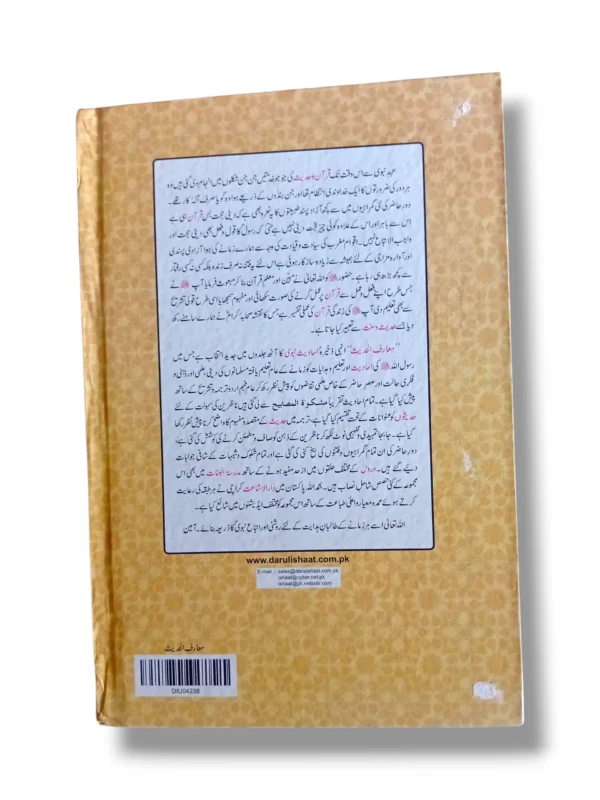 عہد نبوی سے اس وقت تک قرآن و حدیث کی جو جو خدمتیں جن جن شکلوں میں انجام دی گئی ہیں وہ
ہر دور کی ضرورتوں کا ایک خداوندی انتظام تھا اور جن بندوں کے ذریعے ہوا وہ گویا صرف آلہ کار تھے۔
دور حاضر کی نئی گمراہیوں میں سے کچھ آزاد پسند طبیعتوں کا یہ نعرہ بھی ہے کہ دینی حجت بس قرآن ہی ہے
اس سے باہر اور اس کے علاوہ کوئی چیز حجت دینی نہیں ہے حتیٰ کہ رسول کا قول و فعل بھی حجت اور
واجب الاتباع نہیں۔ اقوام مغرب کی سیادت و قیادت کی وجہ سے ہمارے زمانے کی ہوا آزادی پسندی
اور آوارہ مزاجی کے لئے ہمیشہ سے زیادہ سازگار ہوئی ہے اس لئے یہ فتنہ نہ صرف زندہ بلکہ کسی نہ کسی رفتار
سے کچھ بڑھ ہی رہا ہے۔ حضور ﷺ کو اللہ تعالیٰ نے مبین اور معلم قرآن بنا کر مبعوث فرمایا آپ ﷺ نے
جس طرح اپنے فعل و عمل سے قرآن پر عمل کرنے کی صورت سکھائی اور مفہوم سمجھایا اسی طرح قولی تشریح
سے بھی تعلیم دی آپ ﷺ کی زندگی قرآن کی عملی تفسیر ہے جس کا نقشہ صحابہ کرامؓ نے ہمارے سامنے رکھ
دیا جسے حدیث و سنت سے تعبیر کیا جاتا ہے۔
"معارف الحدیث" انہی ذخیرۂ احادیث نبوی کا آٹھ جلدوں میں جدید انتخاب ہے جس میں
رسول اللہ ﷺ کی احادیث اور تعلیم و ہدایات کو زمانے کے عام تعلیم یافتہ مسلمانوں کی دینی، علمی اور ذہنی و
فکری حالت اور عصر حاضر کے خاص علمی تقاضوں کو پیش نظر رکھ کر عام فہم اردو ترجمہ و تشریح کے ساتھ
پیش کیا گیا ہے۔ تمام احادیث تقریباً مشکوٰۃ المصابیح سے لی گئی ہیں ناظرین کی سہولت کے لئے
حدیثوں کو عنوانات کے تحت تقسیم کیا گیا ہے، ترجمہ میں حدیث کے مقصد و مفہوم کا واضح کرنا پیش نظر رکھا
گیا ہے۔ جا بجا تمہیدی و تفہیمی نوٹ لکھ کر ناظرین کے ذہن کو صاف و مطمئن کرنے کی کوشش کی گئی ہے،
دور حاضر کی ان تمام گمراہیوں و فتنوں کی بیخ کنی کی گئی ہے اور تمام شکوک و شبہات کے شافی جوابات
دیئے گئے ہیں۔ دروس کے مختلف حلقوں میں از حد مفید ہونے کے ساتھ مدرسۃ البنات میں بھی اس
مجموعہ کے کئی حصص شامل نصاب ہیں۔ بحمداللہ پاکستان میں دارالاشاعت کراچی نے ہر طبقہ کی رعایت
کرتے ہوئے عمدہ معیار و اعلیٰ طباعت کے ساتھ اس مجموعہ کو مختلف ایڈیشنوں میں شائع کیا ہے۔
اللہ تعالیٰ اسے ہر زمانے کے طالبان ہدایت کے لئے روشنی اور اتباع نبوی کا ذریعہ بنائے۔ آمین
www.darulishaat.com.pk
E-mail : sales@darulishaat.com.pk
ishaat@cyber.net.pk
ishaat@pk.netsolir.com
معارف الحدیث
DIU04238